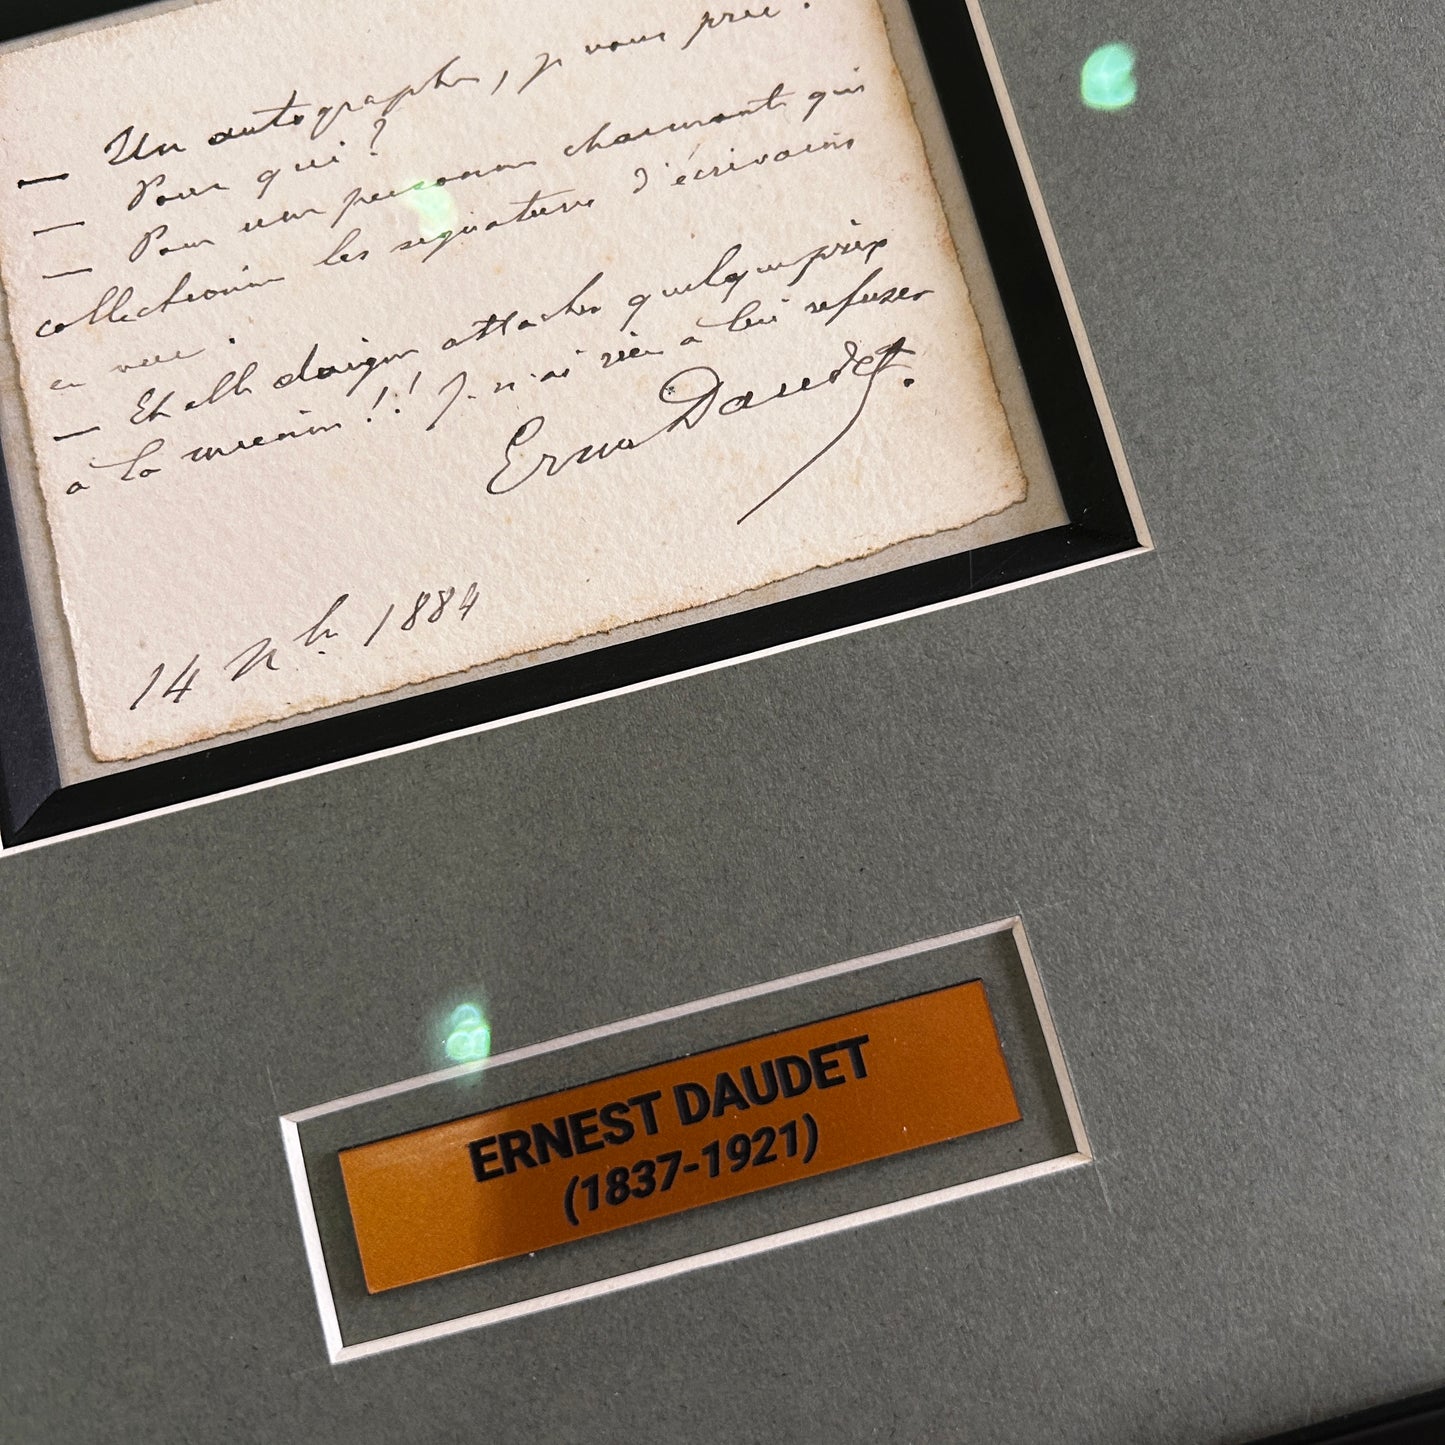 — Un autographe, je vous prie.
— Pour qui ?
— Pour une personne charmante qui
collectionne les signatures d'écrivains
en vue.
— Et elle daigne attacher quelque prix
à la mienne !! Je n'ai rien à lui refuser
Ernest Daudet.
14 Nbre 1884
ERNEST DAUDET
(1837-1921)